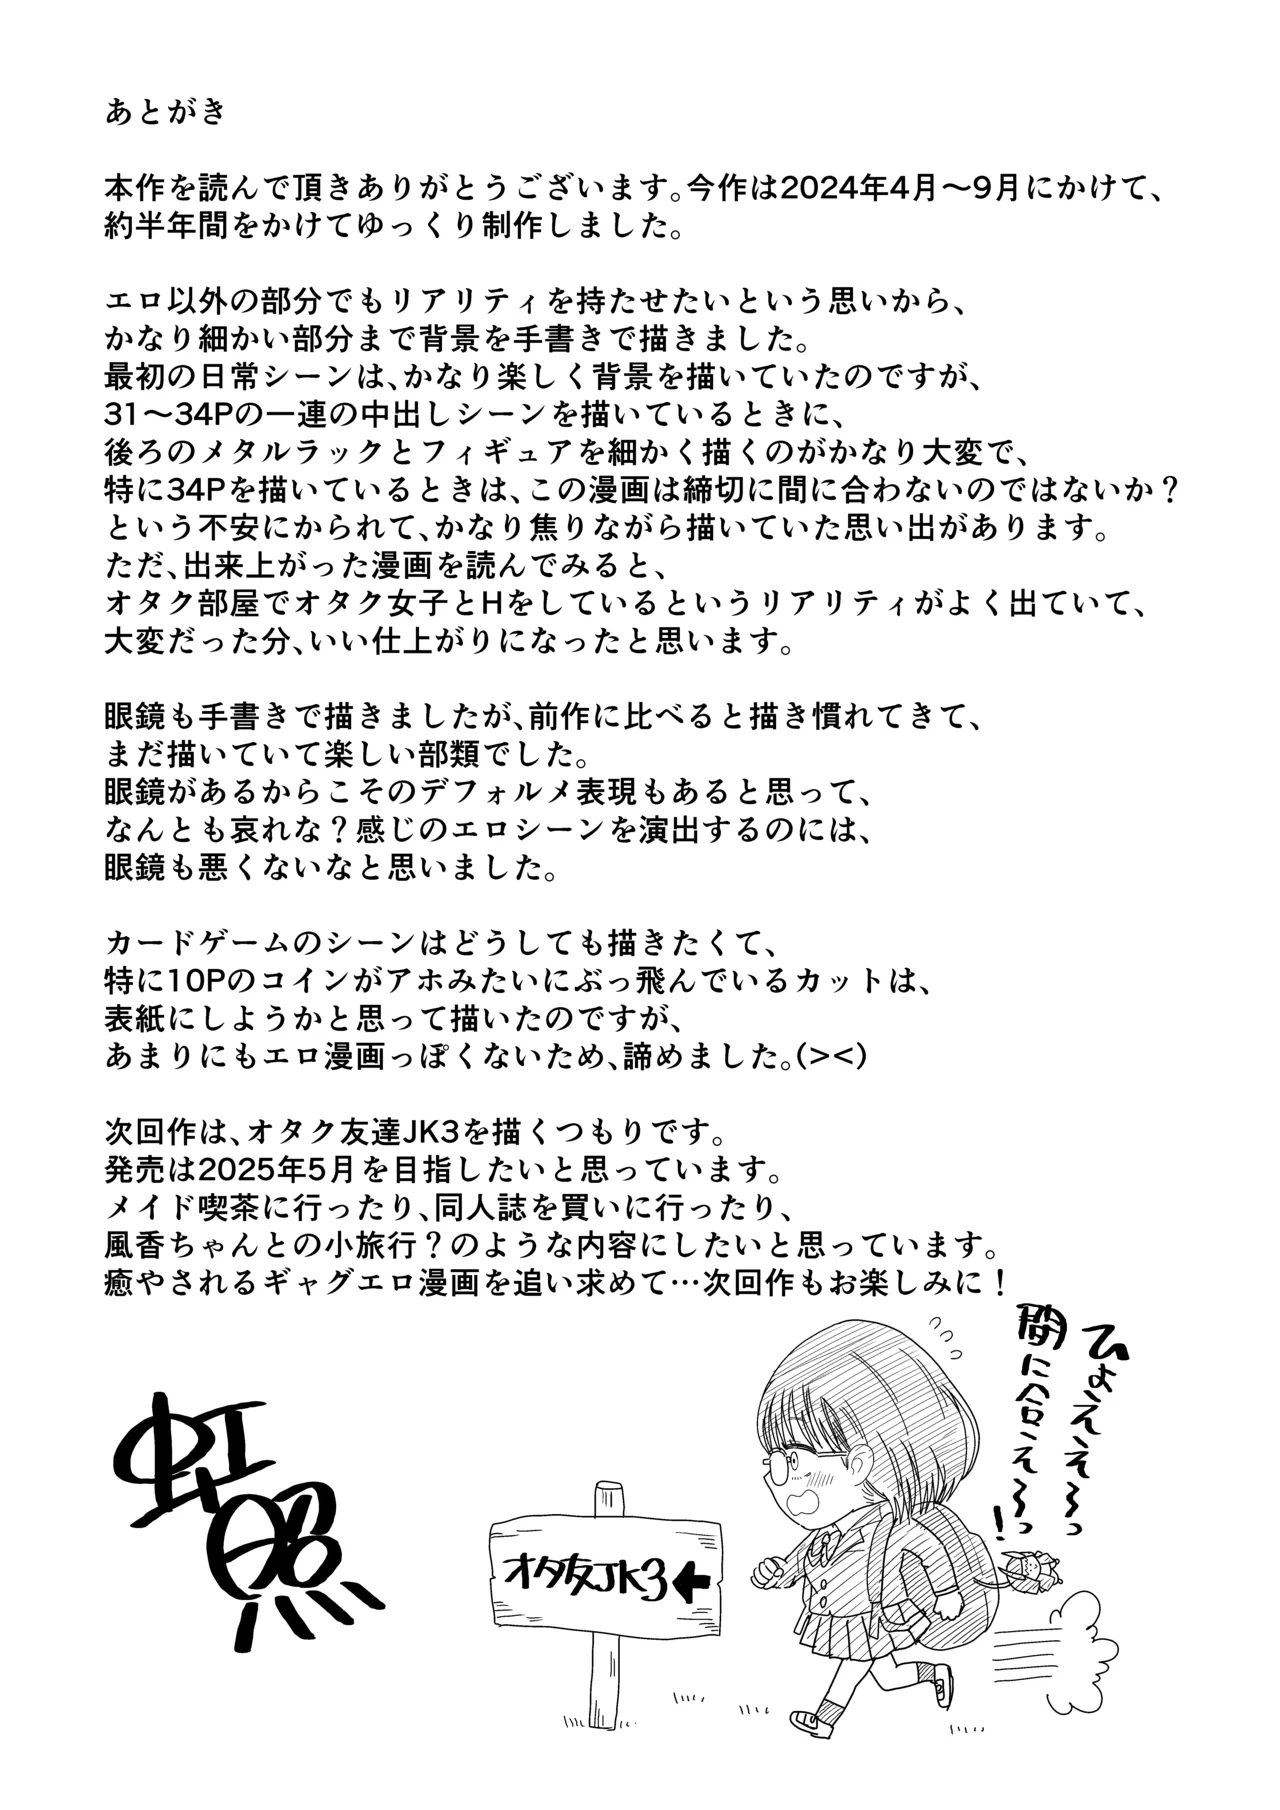 あとがき
本作を読んで頂きありがとうございます。今作は2024年4月～9月にかけて、
約半年間をかけてゆっくり制作しました。
エロ以外の部分でもリアリティを持たせたいという思いから、
かなり細かい部分まで背景を手書きで描きました。
最初の日常シーンは、かなり楽しく背景を描いていたのですが、
31～34Pの一連の中出しシーンを描いているときに、
後ろのメタルラックとフィギュアを細かく描くのがかなり大変で、
特に34Pを描いているときは、この漫画は締切に間に合わないのではないか？
という不安にかられて、かなり焦りながら描いていた思い出があります。
ただ、出来上がった漫画を読んでみると、
オタク部屋でオタク女子とHをしているというリアリティがよく出ていて、
大変だった分、いい仕上がりになったと思います。
眼鏡も手書きで描きましたが、前作に比べると描き慣れてきて、
まだ描いていて楽しい部類でした。
眼鏡があるからこそのデフォルメ表現もあると思って、
なんとも哀れな？感じのエロシーンを演出するのには、
眼鏡も悪くないなと思いました。
カードゲームのシーンはどうしても描きたくて、
特に10Pのコインがアホみたいにぶっ飛んでいるカットは、
表紙にしようかと思って描いたのですが、
あまりにもエロ漫画っぽくないため、諦めました。(><)
次回作は、オタク友達JK3を描くつもりです。
発売は2025年5月を目指したいと思っています。
メイド喫茶に行ったり、同人誌を買いに行ったり、
風香ちゃんとの小旅行？のような内容にしたいと思っています。
癒やされるギャグエロ漫画を追い求めて…次回作もお楽しみに！
ひょえええ～っ
間に合え～っ！
オタ友JK3←
虹照